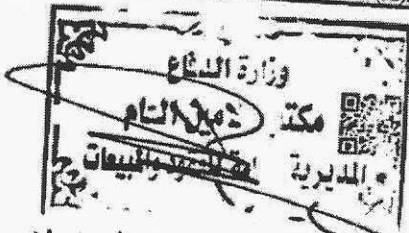 وزارة الدفاع
مكتب الأمين العام
المديرية العامة للعقود والمبيعات